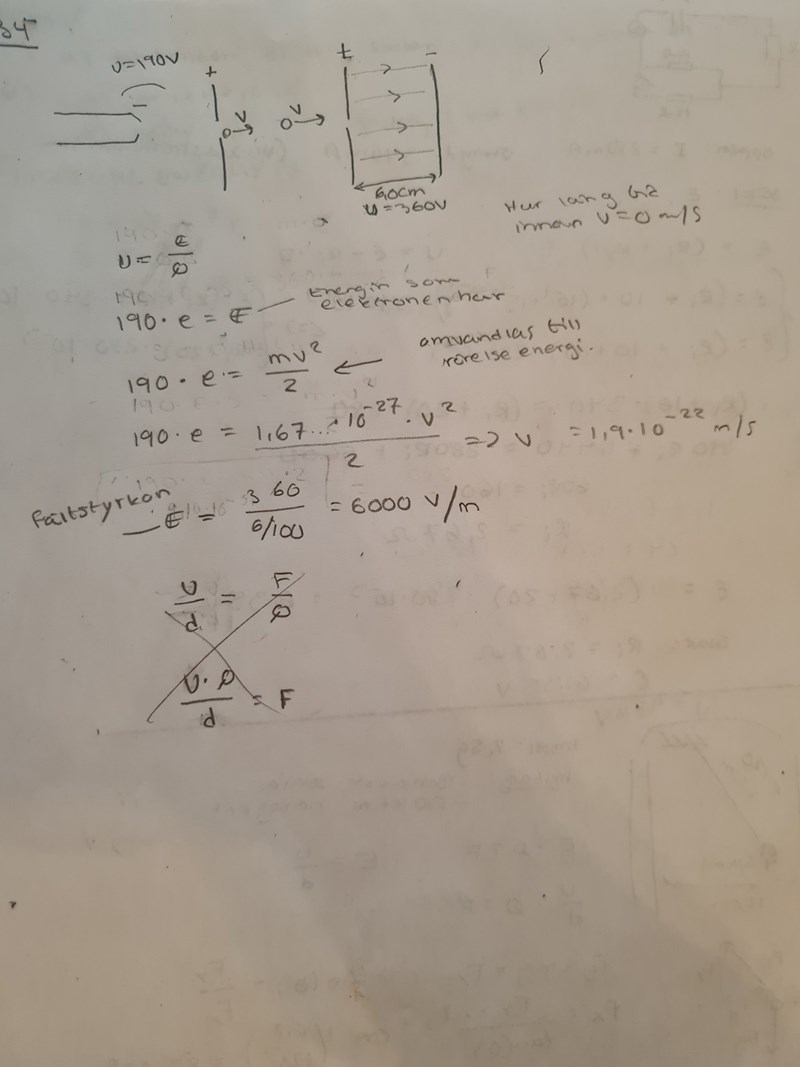 34
U=190V
+
-
V
V
+ -
6,0cm
U=360V
Hur lång
innan V=0 m/s
U = E/Q
190·e = E
Energin som
elektronen har
190·e = mv²/2
omvandlas till
rörelse energi.
190·e = 1,67...·10⁻²⁷·v²/2 => v = 1,9·10⁻²² m/s
Fältstyrkan
E = 360/(6/100) = 6000 V/m
U/d = F/Q
U·Q/d = F